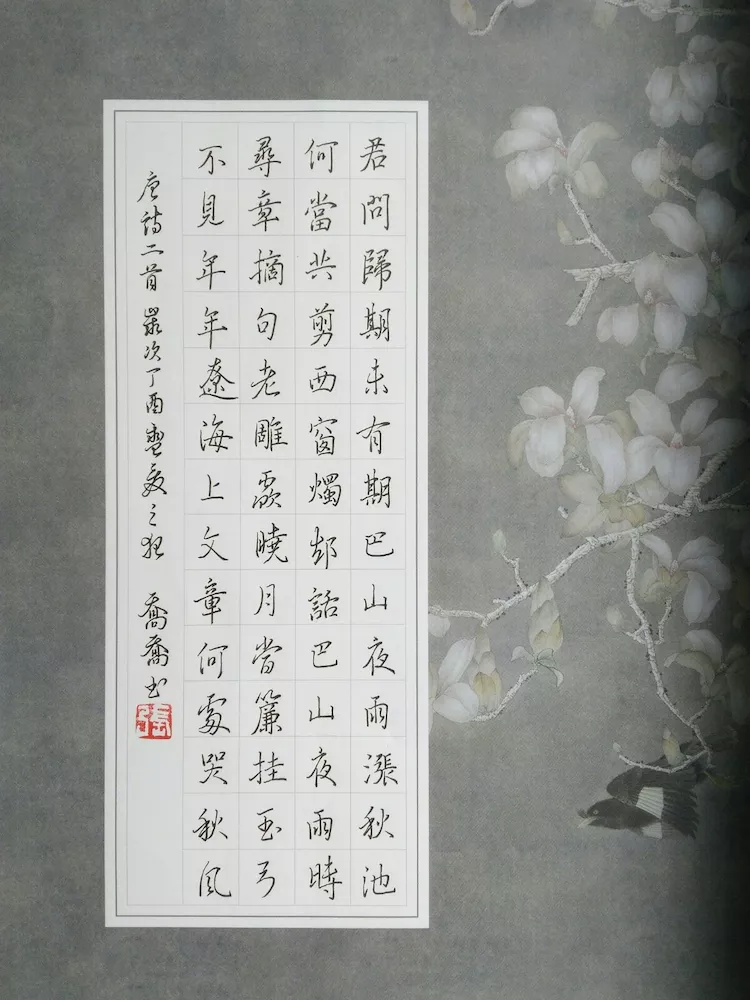 君問歸期未有期巴山夜雨漲秋池
何當共剪西窗燭卻話巴山夜雨時
尋章摘句老雕蟲曉月當簾挂玉弓
不見年年遼海上文章何處哭秋風
唐詩二首 歲次丁酉夏之 喬喬書